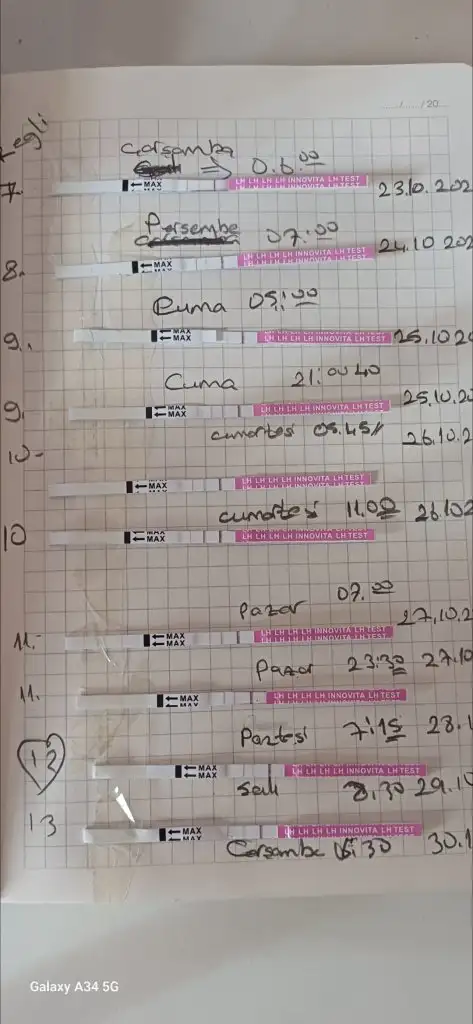 ...../...../20.....
egli
Çarşamba ⇒ 06.00
7. ←MAX LH LH LH LH INNOVITA LH TEST 23.10.202
Perşembe 07:00
8. ←MAX LH LH LH LH INNOVITA LH TEST 24.10 202
Cuma 05:00
9. ←MAX ←MAX LH LH LH LH INNOVITA LH TEST 25.10.20
Cuma 21:00 40
9. ←MAX ←MAX LH LH LH LH INNOVITA LH TEST 25.10.20
cumartesi 05.45 26.10.2
10-
←MAX LH LH LH LH INNOVITA LH TEST
cumartesi 11.00 26.102
10 ←MAX ←MAX LH LH LH LH INNOVITA LH TEST
Pazar 07.00
11.- ←MAX ←MAX LH LH LH LH INNOVITA LH TEST 27.10.2
Pazar 23:30 27.10
11. ←MAX LH LH LH LH INNOVITA LH TEST
Paztesi 7:15 28.1
12 ←MAX ←MAX LH LH LH LH INNOVITA LH TEST
Salı 8.30 29.10
13 ←MAX LH LH LH LH INNOVITA LH TEST
Çarşamba 30 30.1
Galaxy A34 5G